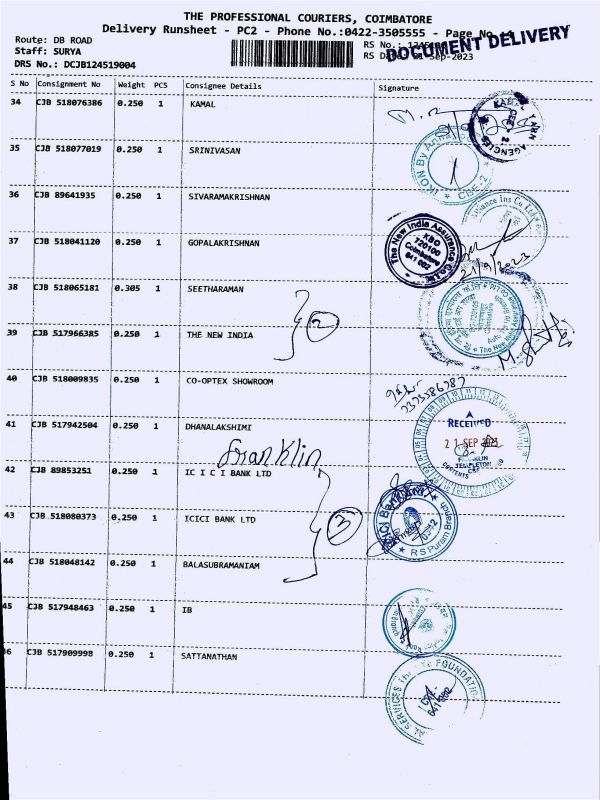 THE PROFESSIONAL COURIERS, COIMBATORE
Delivery Runsheet - PC2 - Phone No.:0422-3505555 - Page No.
DOCUMENT DELIVERY
Route: DB ROAD
Staff: SURYA
DRS No.: DCJB124519004
RS No.:
RS Date: 21-Sep-2023
S No Consignment No Weight PCS Consignee Details Signature
34 CJB 518076386 0.250 1 KAMAL
KAMAL YARN AGENCIES
35 CJB 518077019 0.250 1 SRINIVASAN
IKON By Annapoorna * CBE-2 *
36 CJB 89641935 0.250 1 SIVARAMAKRISHNAN
37 CJB 518041120 0.250 1 GOPALAKRISHNAN
The New India Assurance Co.Ltd.
KBO
720100
Coimbatore
641 002
21/9/2023
38 CJB 518065181 0.305 1 SEETHARAMAN
2
39 CJB 517966385 0.250 1 THE NEW INDIA
40 CJB 518009835 0.250 1 CO-OPTEX SHOWROOM
41 CJB 517942504 0.250 1 DHANALAKSHIMI
RECEIVED
21 SEP 2023
FRANKLIN
TEMPLETON
Franklin
42 CJB 89853251 0.250 1 IC I C I BANK LTD
43 CJB 518080373 0.250 1 ICICI BANK LTD
3
ICICI Bank
* RS Puram Branch
44 CJB 518048142 0.250 1 BALASUBRAMANIAM
45 CJB 517948463 0.250 1 IB
46 CJB 517909998 0.250 1 SATTANATHAN